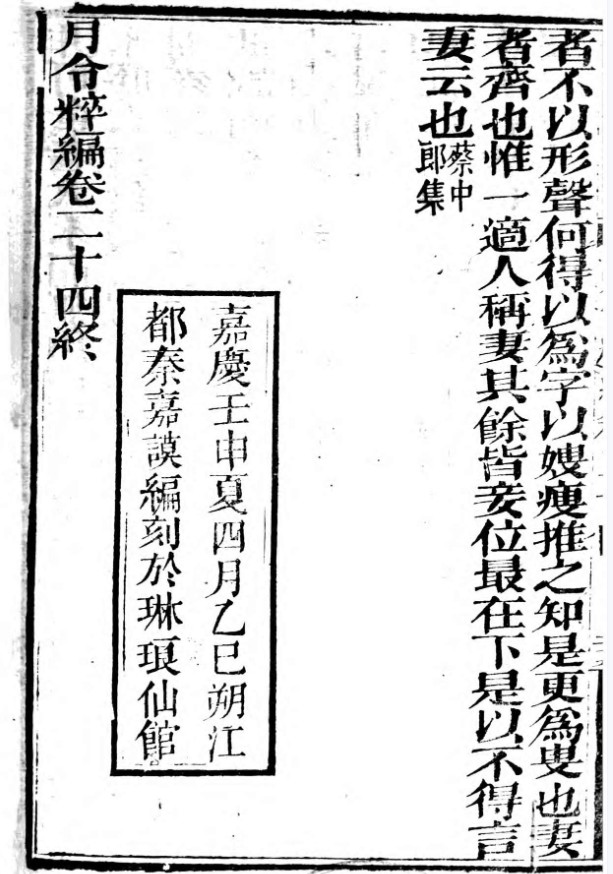 者不以形聲何得以爲字以嫂瘦推之知是更爲叟也妻
者齊也惟一適人稱妻其餘皆妾位最在下是以不得言
妻云也蔡中郎集
嘉慶壬申夏四月乙巳朔江
都秦嘉謨編刻於琳琅仙館
月令粹編卷二十四終